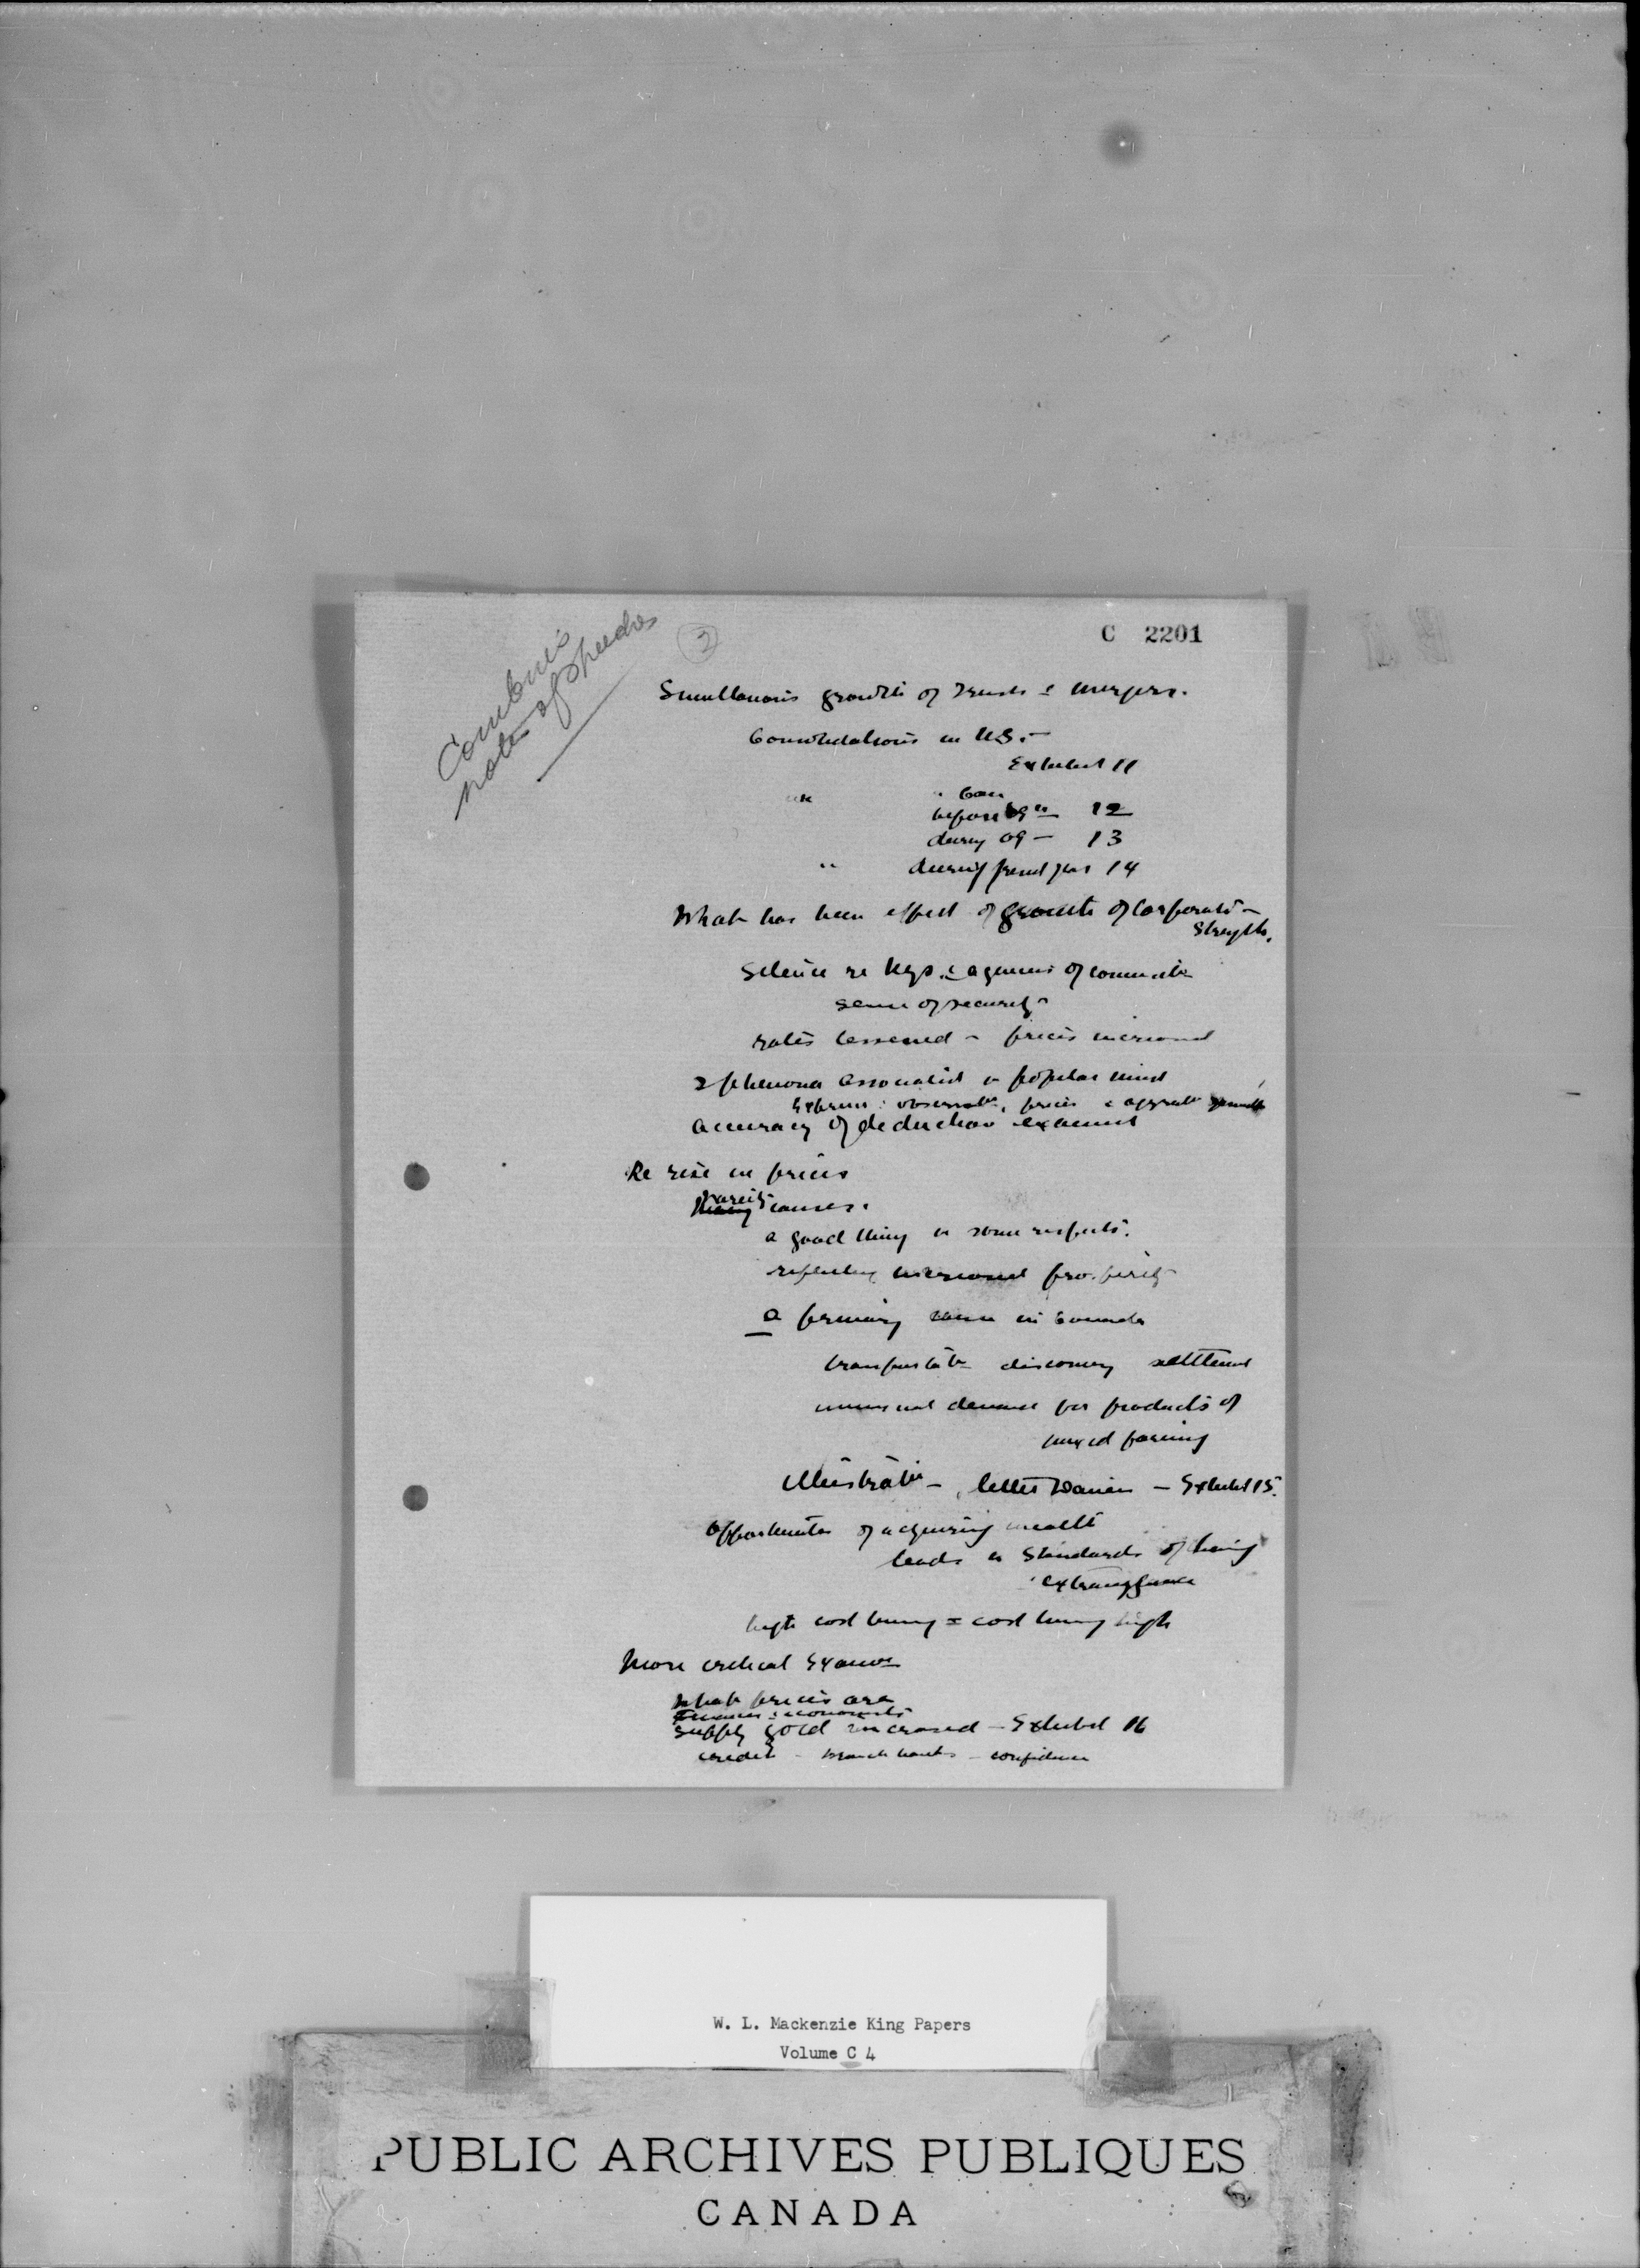 C 2201
Combines
notes of speeches
2
Simultaneous growth of Trusts & mergers.
Consolidations in U.S. –
Exhibit 11
" Can
before 09 – 12
during 09 – 13
" during present year 14
What has been effect of growth of Corporate
Strength.
Silence re & agencies of
sense of security
rates lessened – prices increased
2 phenomena associated in popular mind
prices & growth
accuracy of deduction examined
Re rise in prices
causes.
a good thing in some respects.
reflecting increased prosperity
a primary cause in Canada
transportatn discovery settlement
unusual demand for products of
mixed farming
Illustratn – letter – Exhibit 15.
Opportunities of acquiring wealth
leads to Standards of living
extravagance
high cost living = cost living high
More critical Exam
What prices are
economists
Supply gold increased – Exhibit 16
credit – branch banks – confidence
W. L. Mackenzie King Papers
Volume C 4
PUBLIC ARCHIVES PUBLIQUES
CANADA